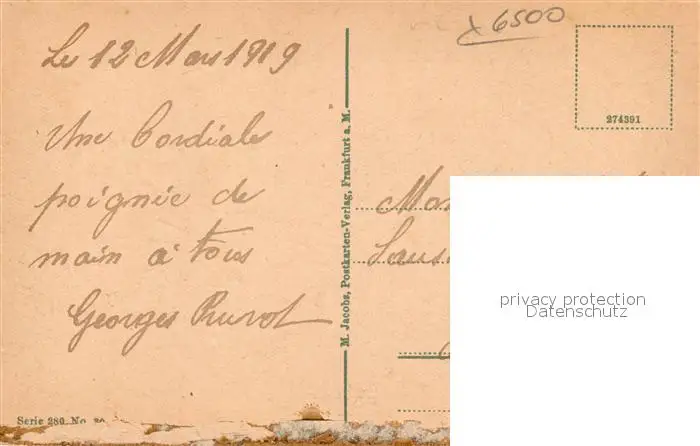 Le 12 Mars 1919
Une Cordiale
poignée de
main à tous
Georges
x 6500
274391
M. Jacobs, Postkarten-Verlag, Frankfurt a. M.
privacy protection
Datenschutz
Serie 280 No.